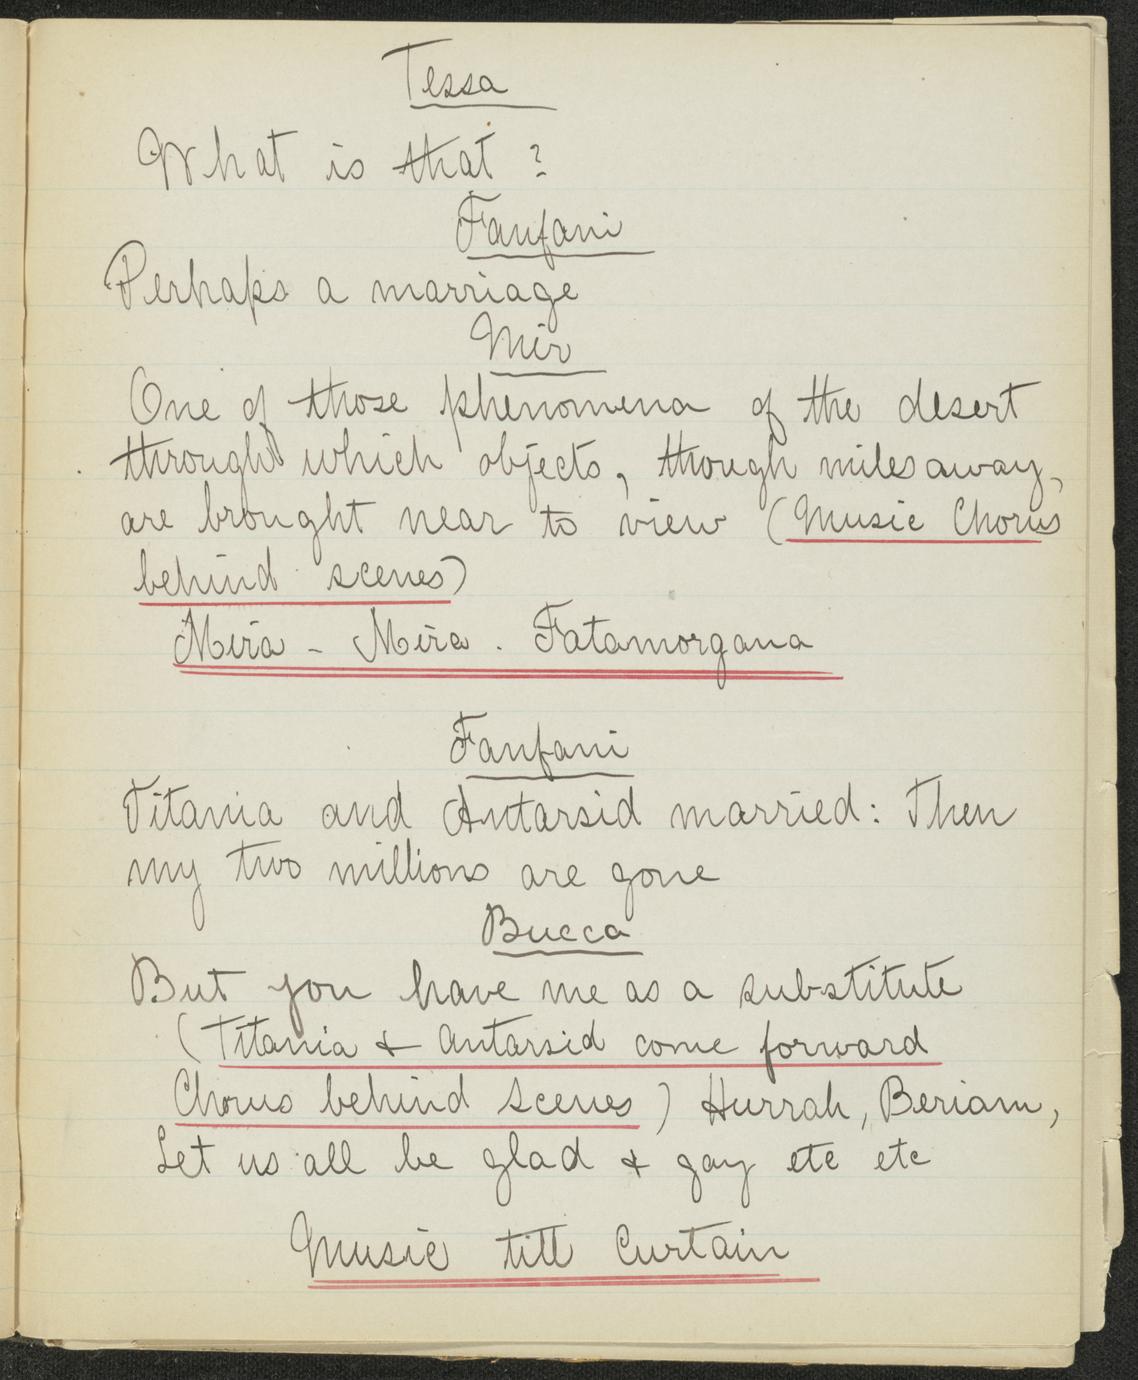 Tessa
What is that ?
Fanfani
Perhaps a marriage
Mir
One of those phenomena of the desert
through which objects, though miles away,
are brought near to view (Music Chorus
behind scenes)
Mira - Mira . Fatamorgana
Fanfani
Titania and Antarsid married: Then
my two millions are gone
Bucca
But you have me as a substitute
(Titania & Antarsid come forward
Chorus behind scenes) Hurrah, Beriam,
Let us all be glad & gay etc etc
Music till Curtain